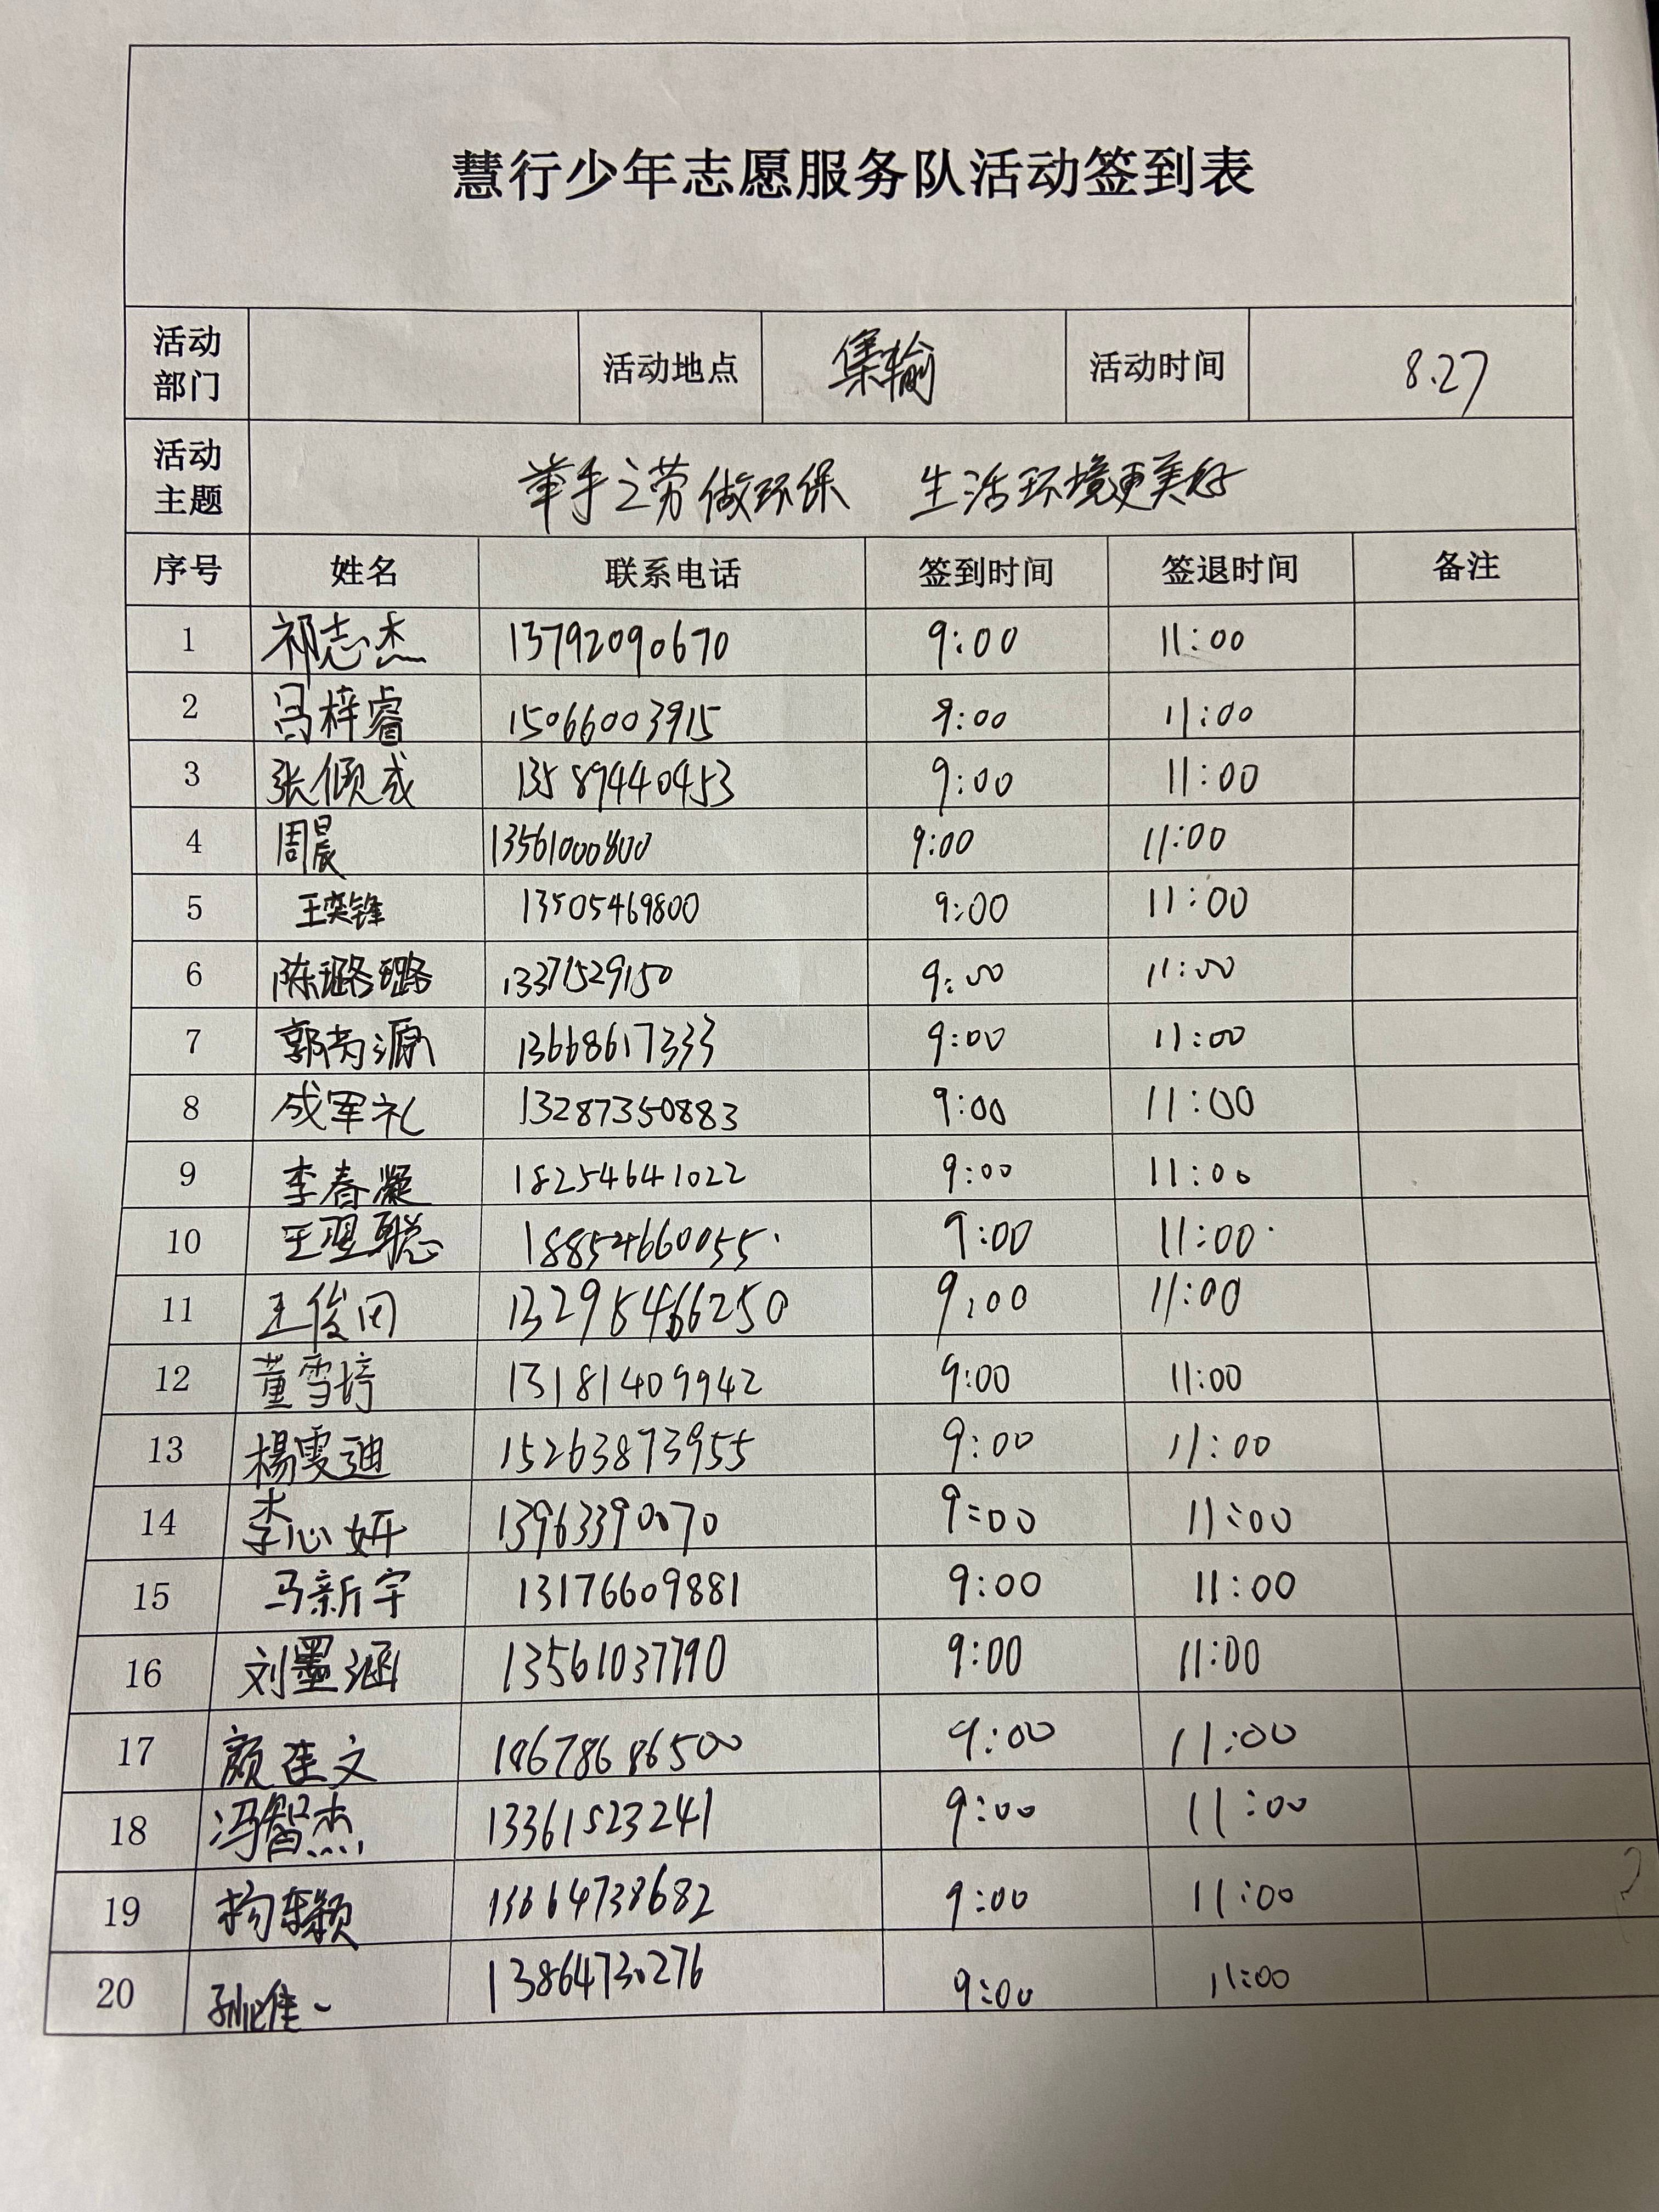 慧行少年志愿服务队活动签到表
活动部门 活动地点 集输 活动时间 8.27
活动主题 举手之劳做环保 生活环境更美好
序号 姓名 联系电话 签到时间 签退时间 备注
1 祁志杰 13792090670 9:00 11:00
2 吕梓睿 15066003915 9:00 11:00
3 张倾成 13589440453 9:00 11:00
4 周晨 13561000800 9:00 11:00
5 王奕锋 13505469800 9:00 11:00
6 陈璐璐 13371529150 9:00 11:00
7 郭芮源 13668617333 9:00 11:00
8 成军礼 13287350883 9:00 11:00
9 李春凝 18254641022 9:00 11:00
10 王翌聪 18854660055 9:00 11:00
11 9:00 11:00
12 董雪婷 13181409942 9:00 11:00
13 楊雯迪 15263873955 9:00 11:00
14 李心妍 13963390070 9:00 11:00
15 马新宇 13176609881 9:00 11:00
16 刘墨涵 13561037790 9:00 11:00
17 颜佳文 9:00 11:00
18 冯智杰 13361523241 9:00 11:00
19 9:00 11:00
20 孙唯一 13864730276 9:00 11:00